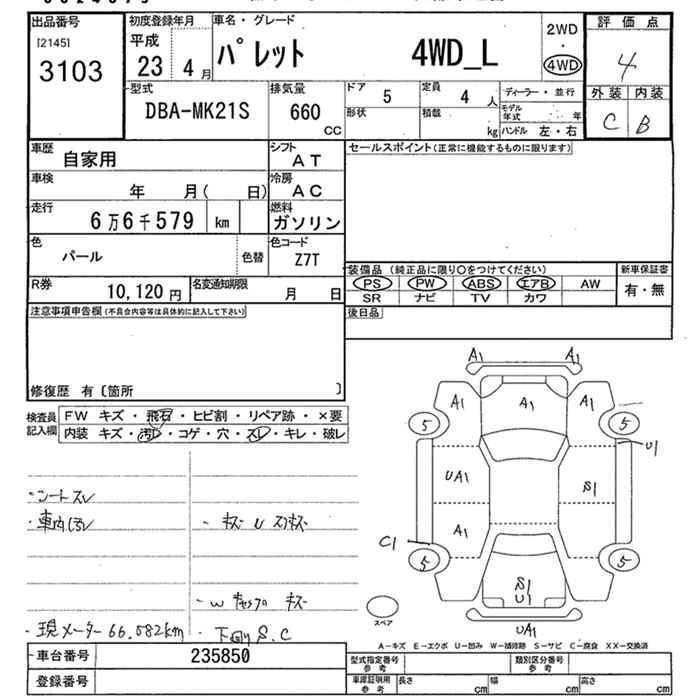 出品番号 初度登録年月 車名・グレード 2WD 評価点
[2145] 平成 ・
3103 23 4月 パレット 4WD_L 4WD 4
型式 排気量 ドア 5 定員 4人 ディーラー・並行 外装 内装
DBA-MK21S 660 CC 形状 積載 kg モデル年式 年 C B
ハンドル 左・右
車歴 自家用 シフト AT セールスポイント(正常に機能するものに限ります)
車検 年 月( 日) 冷房 AC
走行 6万6千579 km 燃料 ガソリン
色 パール 色替 色コード Z7T
装備品 (純正品に限り○をつけてください) 新車保証書
R券 10,120円 名変通知期限 月 日 PS PW ABS エアB AW 有・無
SR ナビ TV カワ
注意事項申告欄(不具合内容等は具体的に記入して下さい) 後日品
修復歴 有〔箇所 〕
検査員記入欄 FW キズ・飛石・ヒビ割・リペア跡・×要
内装 キズ・汚レ・コゲ・穴・スレ・キレ・破レ
A1 A1
A1 A1 A1
5 5
U1
UA1 S1
A1
C1
5 5
S1
U1
UA1
・シートスレ
・車内汚レ
・現メーター66.582km
・下回りS.C
スペア
A-キズ E-エクボ U-凹み W-補修跡 S-サビ C-腐食 XX-交換済
車台番号 235850 型式指定番号 参考 類別区分番号 参考
登録番号 車庫証明用 参考 長さ cm 幅 cm 高さ cm